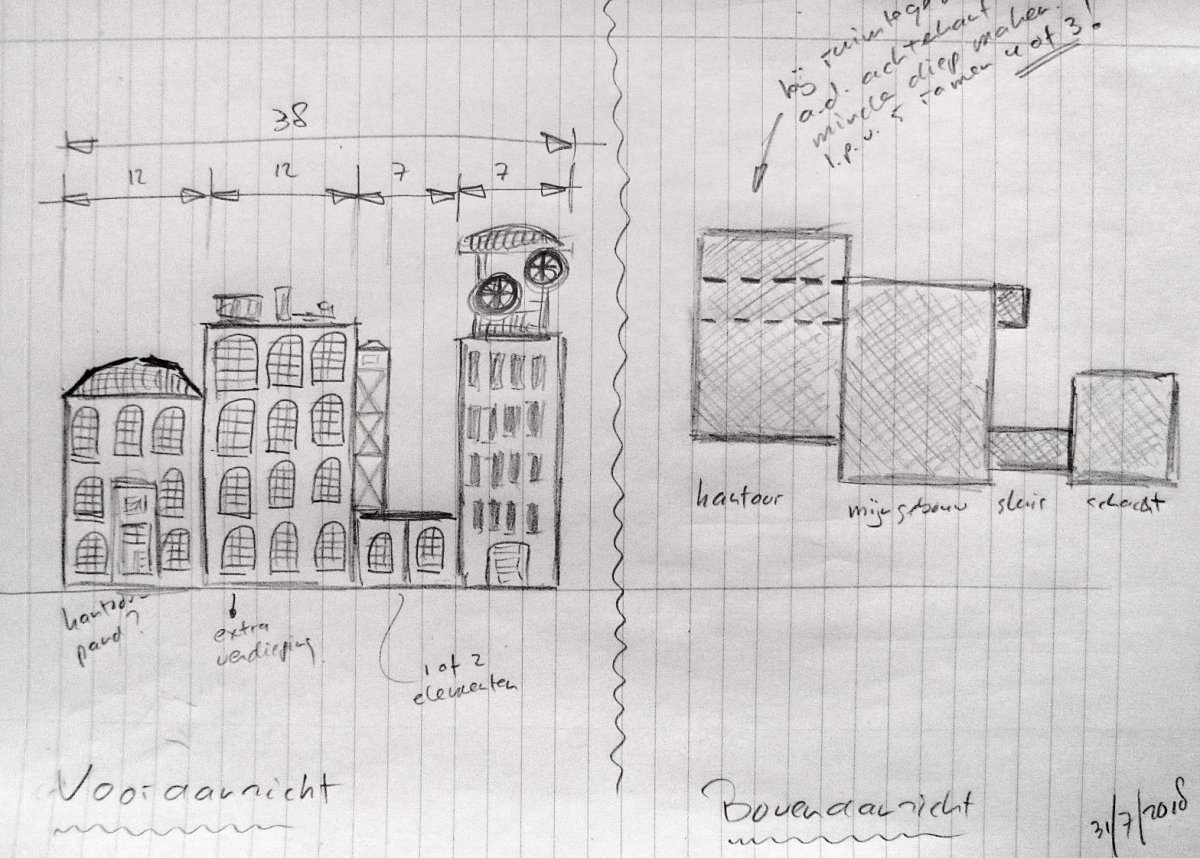 38
12 12 7 7
bij ruimtege
a.d. achterkant
minder diep maken.
I.p.v. 5 ramen 4 of 3!
kantoor
mijngebouw
sluis
schacht
kantoor
pand?
extra
verdieping
1 of 2
elementen
Vooraanzicht
Bovenaanzicht
31/7/2018